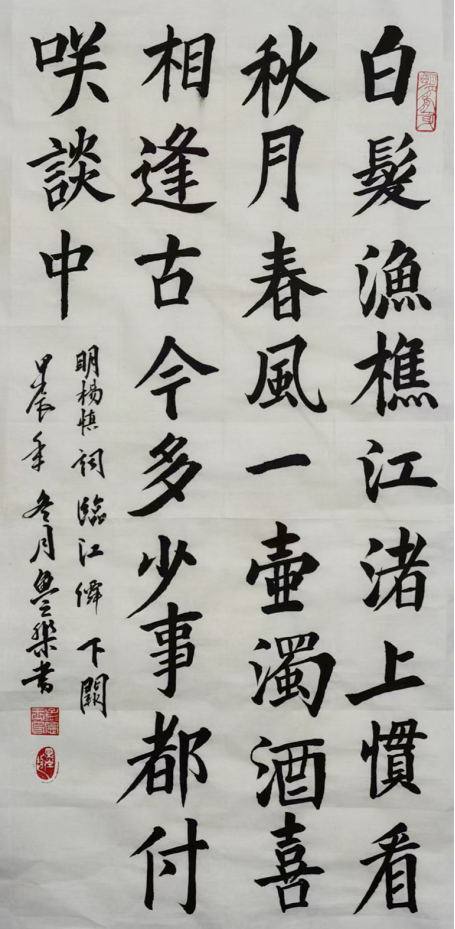 白髮漁樵江渚上慣看
秋月春風一壺濁酒喜
相逢古今多少事都付
咲談中
明楊慎詞臨江僊下闋
甲辰年冬月魯樂書